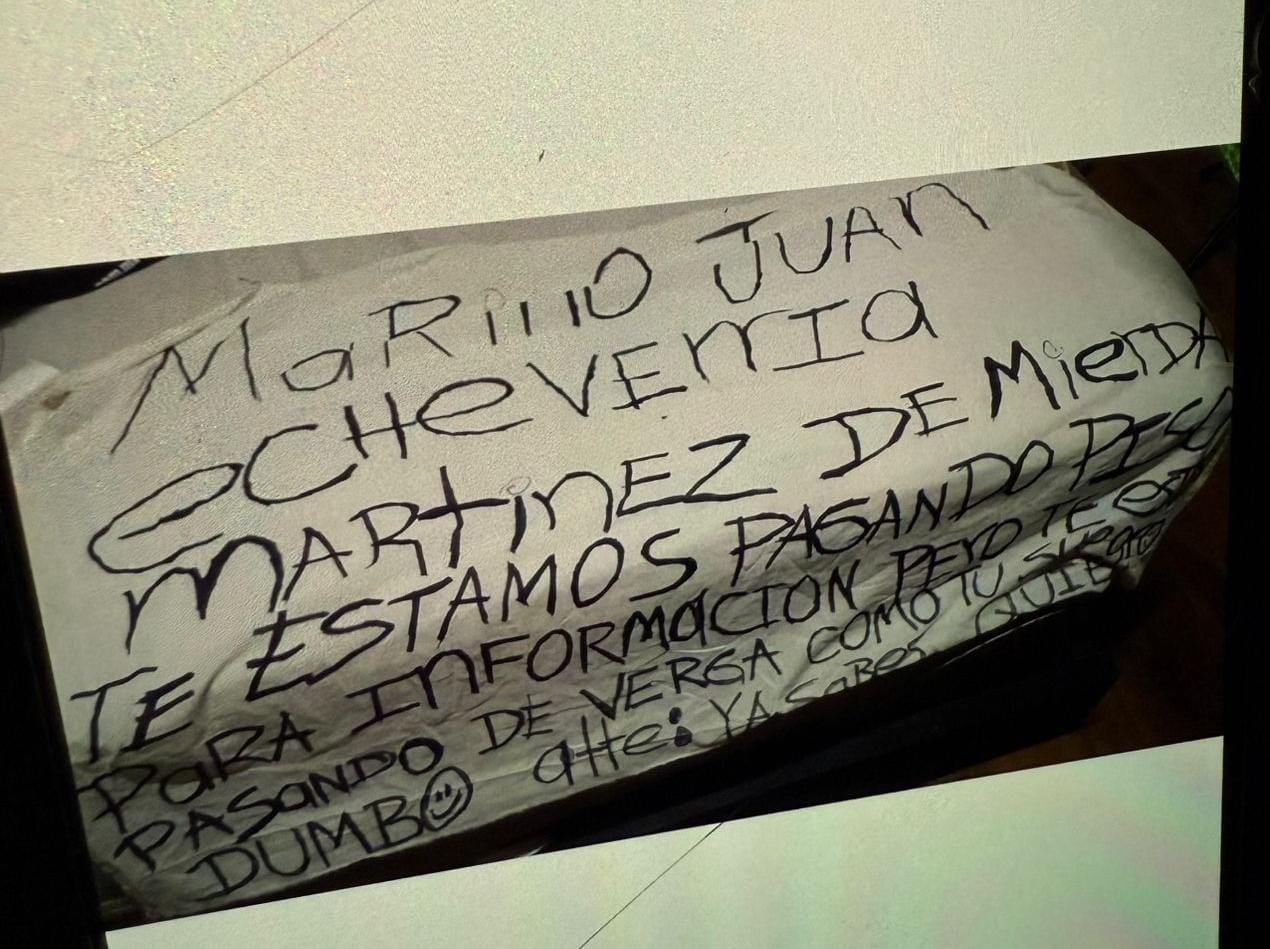 MaRinO JUAN
eCHeVErrIa
mARtinEZ DE MierDA
TE ESTAMOS PASANDO PISO
PaRA INFORMaCION PErO TE
PASanDO DE VERGA COMO TU SUegrO
DUMBO atte: YA SaBes QUIEn